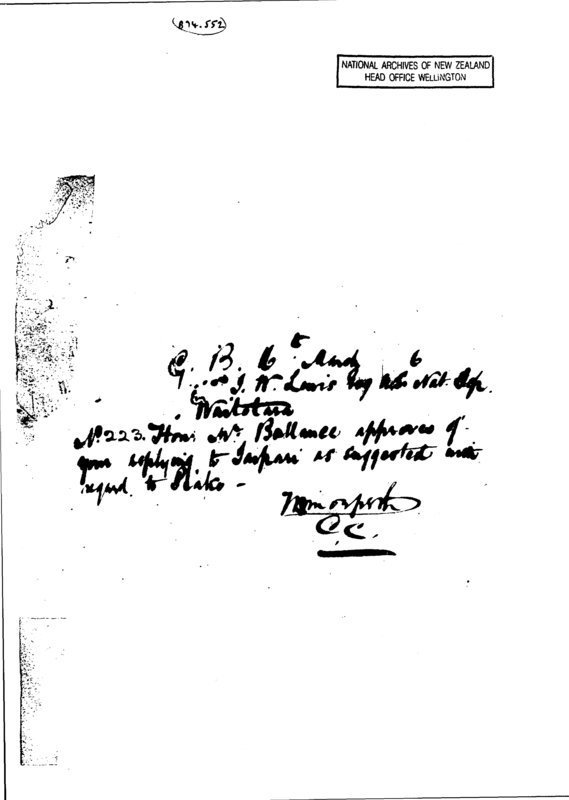 894.552
NATIONAL ARCHIVES OF NEW ZEALAND
HEAD OFFICE WELLINGTON
G. B. th 6
T. W. Lewis Esq Nat. Dep.
Waitotara
No 223. Hon: Mr Ballance approves of
your replying to as suggested with
regard to Piako -
C.C.